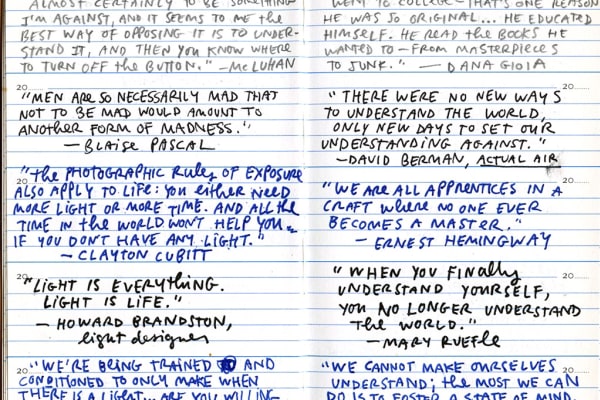 ALMOST CERTAINLY TO BE SOMETHING
I'M AGAINST, AND IT SEEMS TO ME the
BEST WAY OF OPPOSING IT IS TO UNDER-
STAND IT, AND THEN YOU KNOW WHERE
TO TURN OFF the BUTTON." -McLUHAN
20
"MEN ARE SO NECESSARILY MAD THAT
NOT TO BE MAD WOULD AMOUNT TO
ANOTHER FORM OF MADNESS."
—BLAISE PASCAL
20
"the PHOTOGRAPHIC RULES OF EXPOSURE
ALSO APPLY TO LIFE: YOU EITHER NEED
MORE LIGHT OR MORE TIME. AND ALL the
TIME IN the WORLD WON'T HELP YOU
IF YOU DON'T HAVE ANY LIGHT."
— CLAYTON CUBITT
20
"LIGHT IS EVERYTHING.
LIGHT IS LIFE."
— HOWARD BRANDSTON,
light designer
20
"WE'RE BEING TRAINED AND
CONDITIONED TO ONLY MAKE WHEN
THERE IS A LIGHT... ARE YOU WILLING
WENT TO COLLEGE—THAT'S ONE REASON
HE WAS SO ORIGINAL... HE EDUCATED
HIMSELF. HE READ the BOOKS HE
WANTED TO—FROM MASTERPIECES
TO JUNK." — DANA GIOIA
20
"THERE WERE NO NEW WAYS
TO UNDERSTAND THE WORLD,
ONLY NEW DAYS TO SET OUR
UNDERSTANDING AGAINST."
—DAVID BERMAN, ACTUAL AIR
20
"WE ARE ALL APPRENTICES IN A
CRAFT where NO ONE EVER
BECOMES A MASTER."
— ERNEST HEMINGWAY
20
"WHEN YOU FINALLY
UNDERSTAND YOURSELF,
YOU NO LONGER UNDERSTAND
the WORLD."
—MARY RUEFLE
20
"WE CANNOT MAKE OURSELVES
UNDERSTAND; the MOST WE CAN
DO IS TO FOSTER A STATE OF MIND